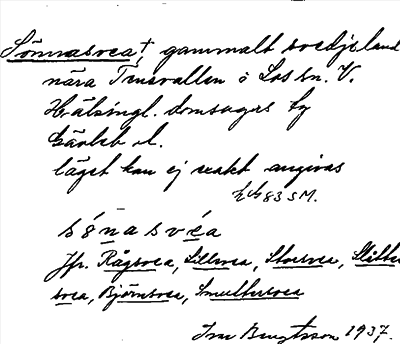 Sömnasvea†, gammalt svedjeland
nära Tensvallen i Los sn. V.
Hälsingl. domsagas tg
Gävleb. l.
läget kan ej exakt angivas
83 SM.
sónasvéa
Jfr. Rågsvea, Lillsvea, Storsvea, Slåtte
svea, Björnsvea, Smultersvea
Ivar Bengtsson 1937.